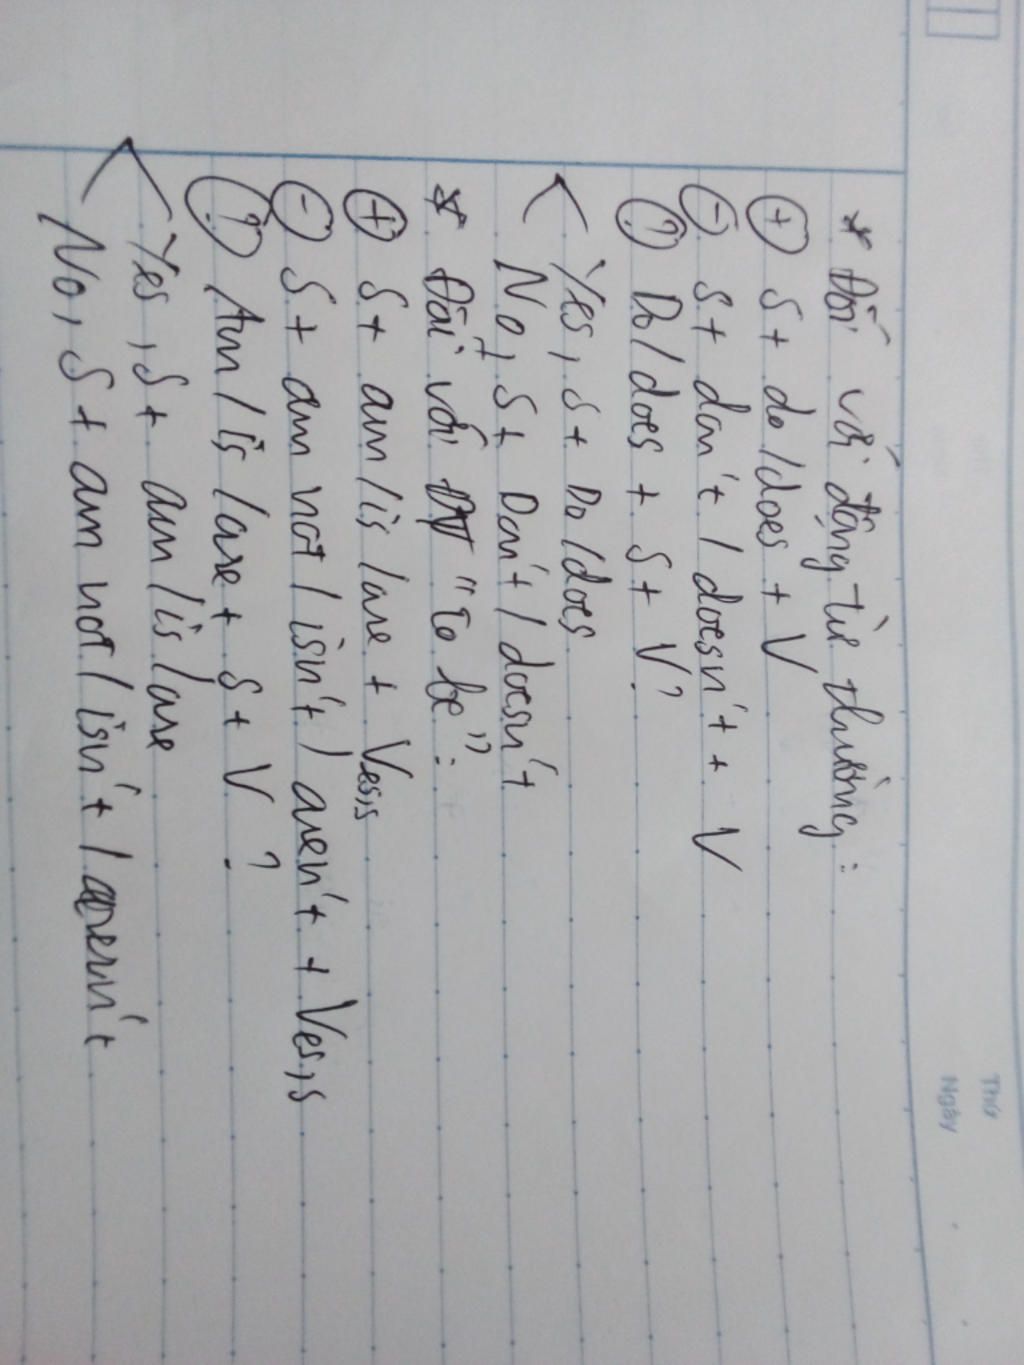 Thứ
Ngày
* Đối với động từ thường:
(+) S + do/does + V
(-) S + don't / doesn't + V
(?) Do/does + S + V?
Yes, S + Do/does
No, S + Don't / doesn't
* Đối với ĐT "To be":
(+) S + am/is/are + Ves,s
(-) S + am not/isn't/aren't + Ves,s
(?) Am/is/are + S + V?
Yes, S + am/is/are
No, S + am not/isn't/aren't